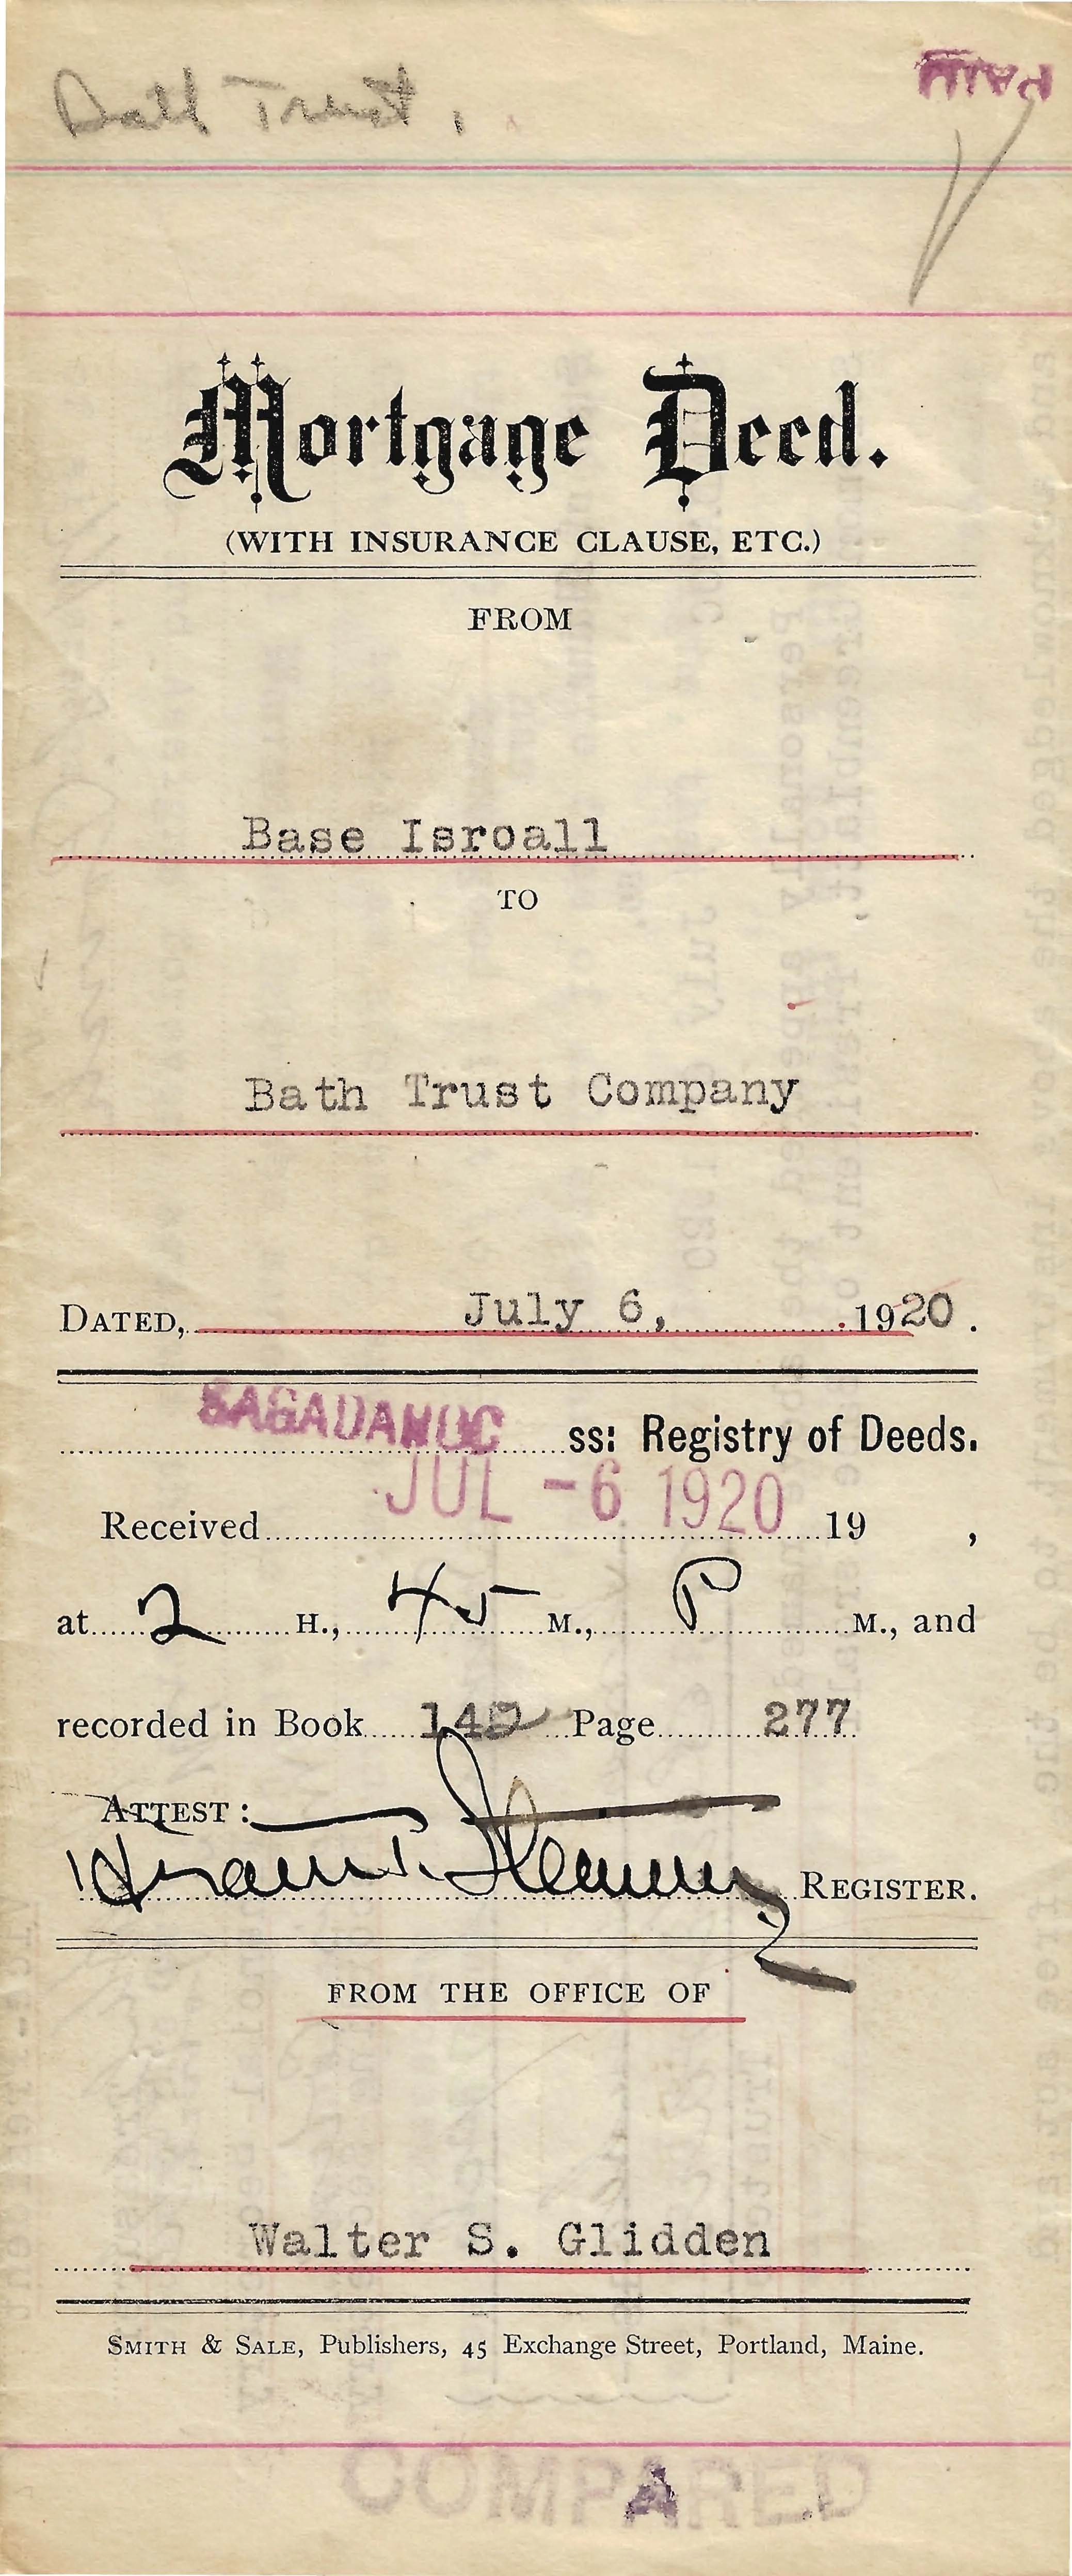 Bath Trust,
PAID
Mortgage Deed.
(WITH INSURANCE CLAUSE, ETC.)
FROM
Base Isroall
TO
Bath Trust Company
DATED, July 6, 1920.
SAGADAHOC ss: Registry of Deeds.
Received JUL -6 1920 19 ,
at 2 H., 45 M., P M., and
recorded in Book 142 Page 277
ATTEST:
Hiram T. Stevens REGISTER.
FROM THE OFFICE OF
Walter S. Glidden
SMITH & SALE, Publishers, 45 Exchange Street, Portland, Maine.
COMPARED